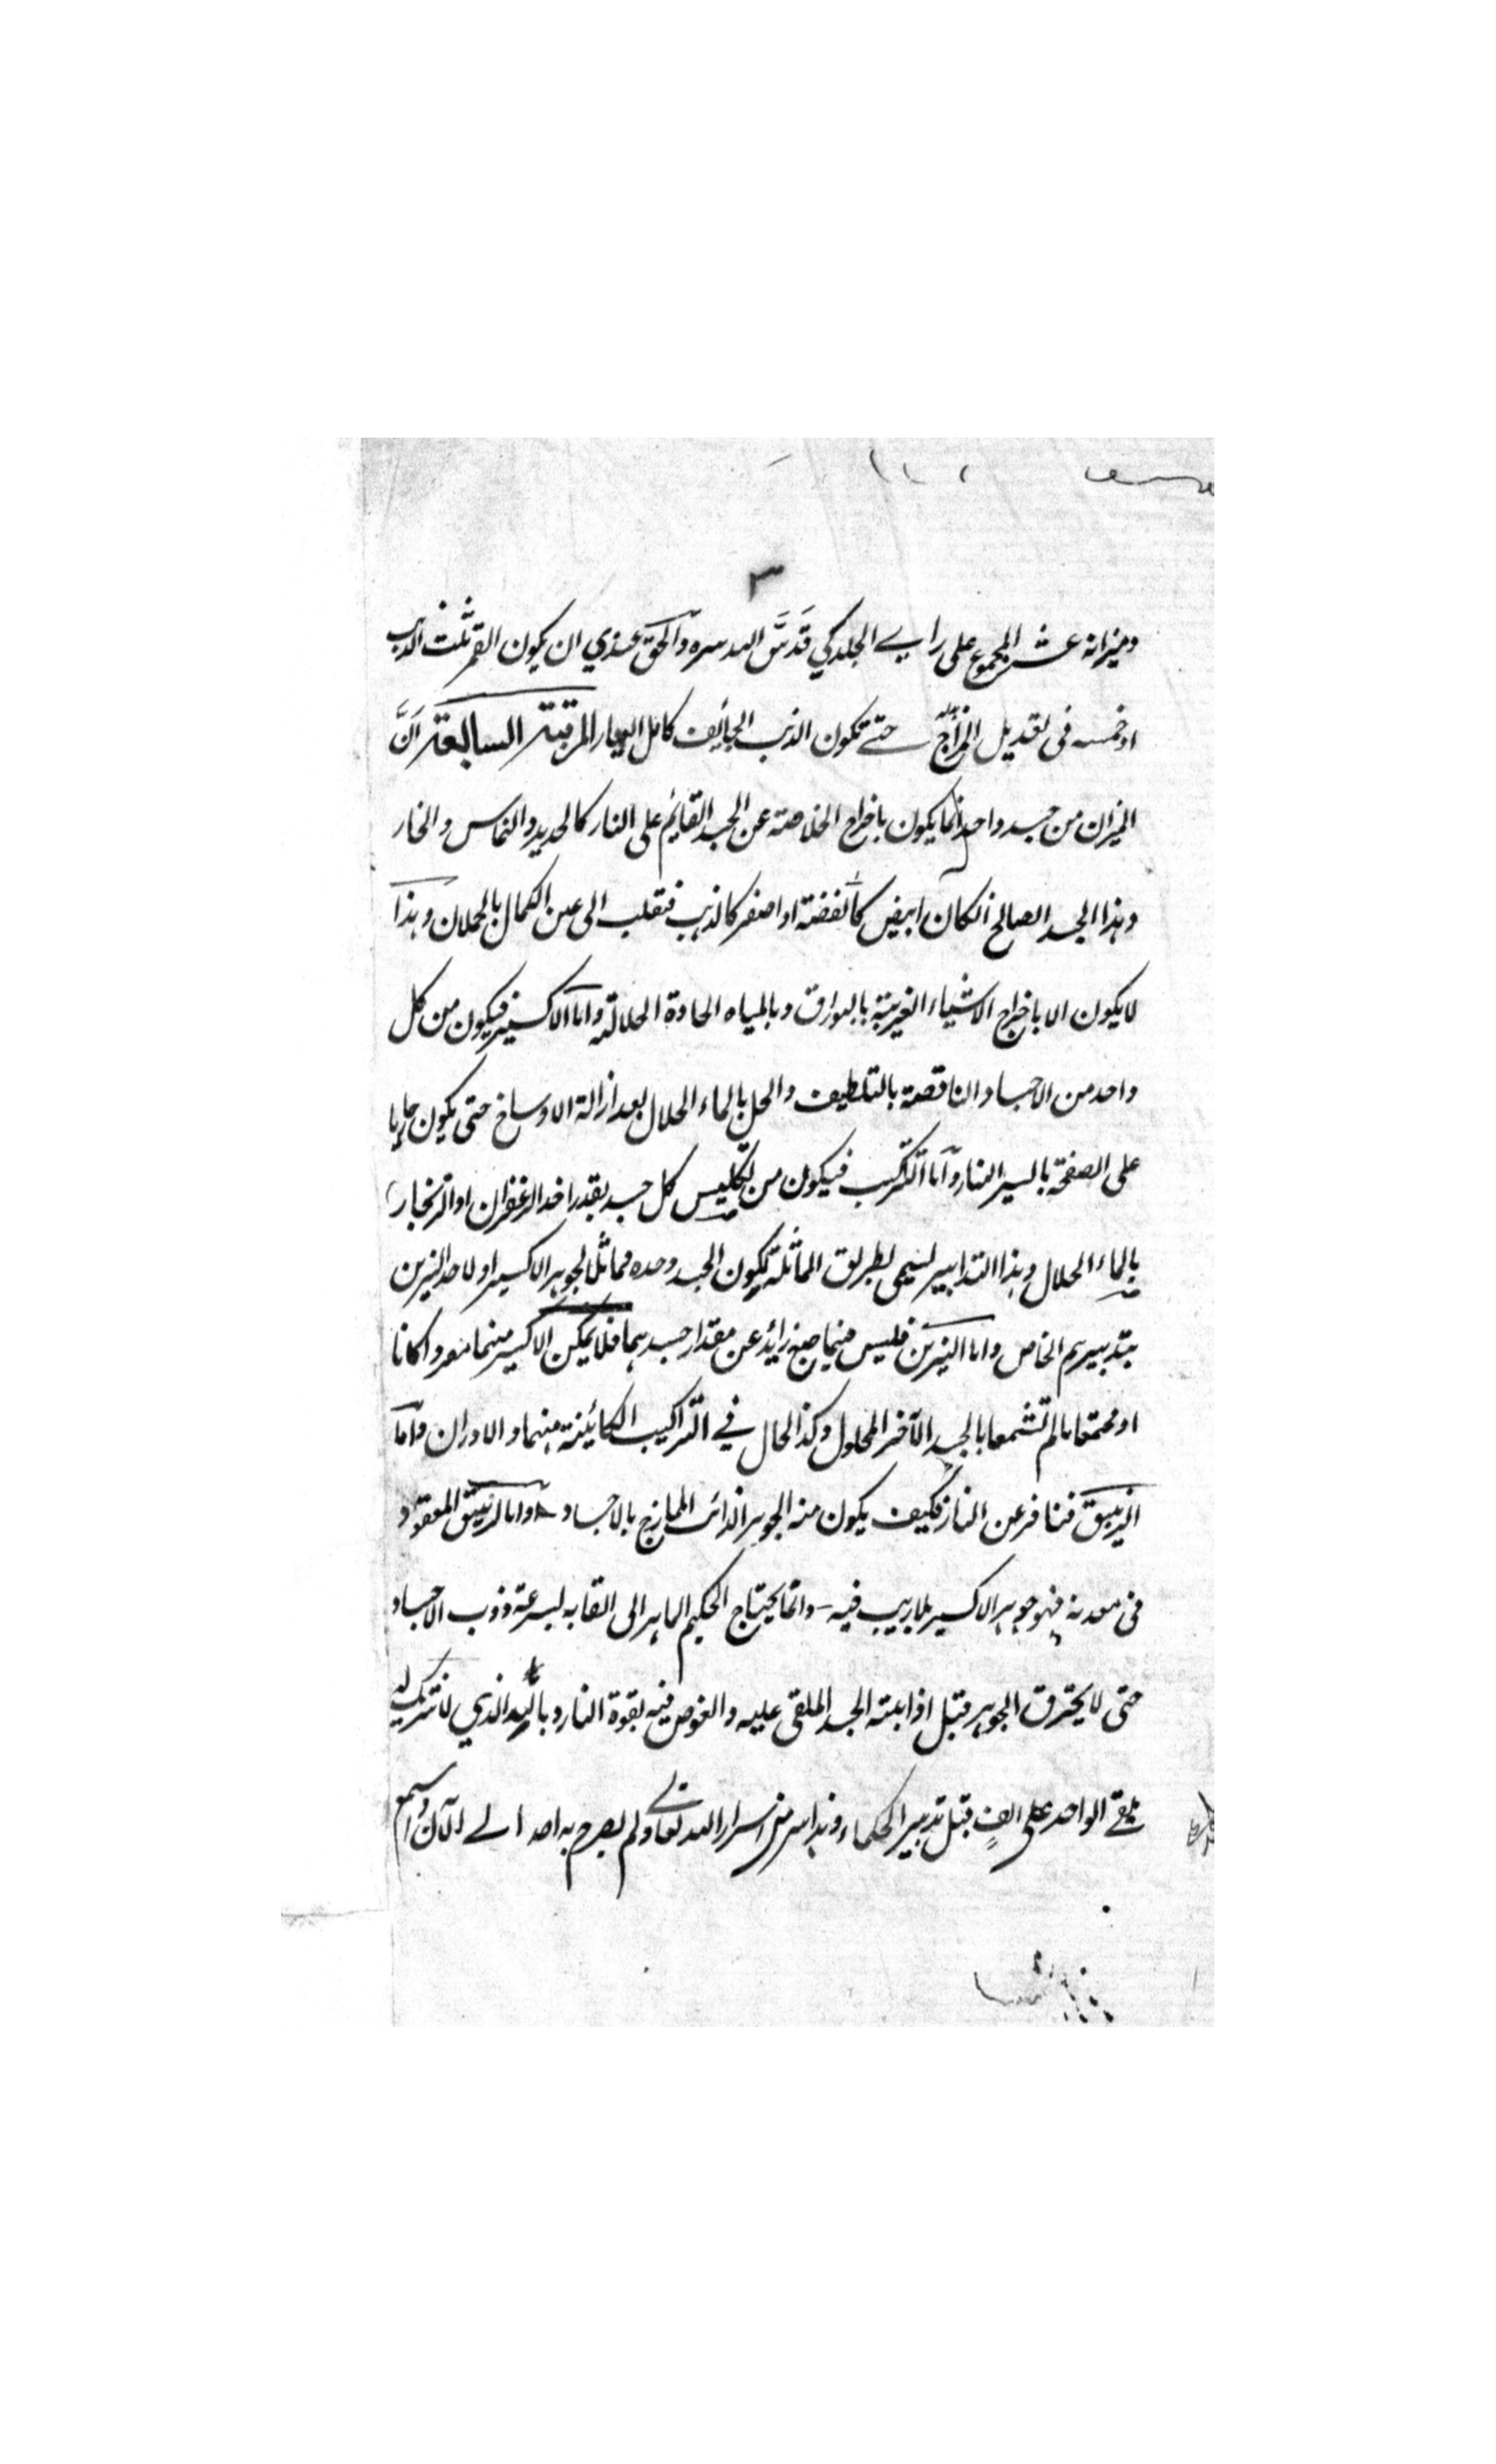 ٣
وميزانه عشر المجموع على راي الجلدكي قدس الله سره والحق عندي ان يكون القمر ثلث الذهب
او خمسه في تعديل المزاج حتى تكون الذهب الجائف كامل العيار المرتبة السابعة ان
الميزان من جسد واحد انما يكون باخراج الخلاصة عن الجسد القايم على النار كالحديد والنحاس والخار
وهذا الجسد الصالح انكان ابيض كالفضة او اصفر كالذهب فتقلب الى عين الكمال بالحملان وهذا
لا يكون الا باخراج الاشياء الغريبة بالبوارق وبالمياه الحادة الحلالة واما الاكسير فيكون من كل
واحد من الاجساد الناقصة بالتلطيف والحل بالماء الحلال بعد ازالة الاوساخ حتى يكون جاريا
على الصفحة باليسير النار واما التركيب فيكون من تكليس كل جسد بقدر اخد الزعفران او الزنجار
بالماء الحلال وهذا التدابير ليسمى بطريق المماثلة ليكون الجسد وحده مماثلا لجوهر الاكسير او لاحد النيرين
بتدبيرهم الخاص واما النيرين فليس فيهما صبغ زائد عن مقدار جسدهما فلا يمكن الاكسير منهما منفردا كانا
او مجتمعا ما لم تشمعا بالجسد الآخر المحلول وكذا الحال في التراكيب الكائنة منهما والاوزان واما
الزيبق فنافر عن النار فكيف يكون منه الجوهر الذائب الممازج بالاجساد واما الزيبق المعقود
في معدنه فهو جوهر الاكسير بلا ريب فيه وانما يحتاج الحكيم الماهر الى القابه لسرعة وذوب الاجساد
حتى لا يحترق الجوهر قبل اذابته الجسد الملقى عليه والغوص فيه بقوة النار وبالله الذي لا شريك له
يلقى الواحد على الف قبل تدبير الحكماء وهذا سر من اسرار الله تعالى ولم يصرح به احد الى الآن واسمع